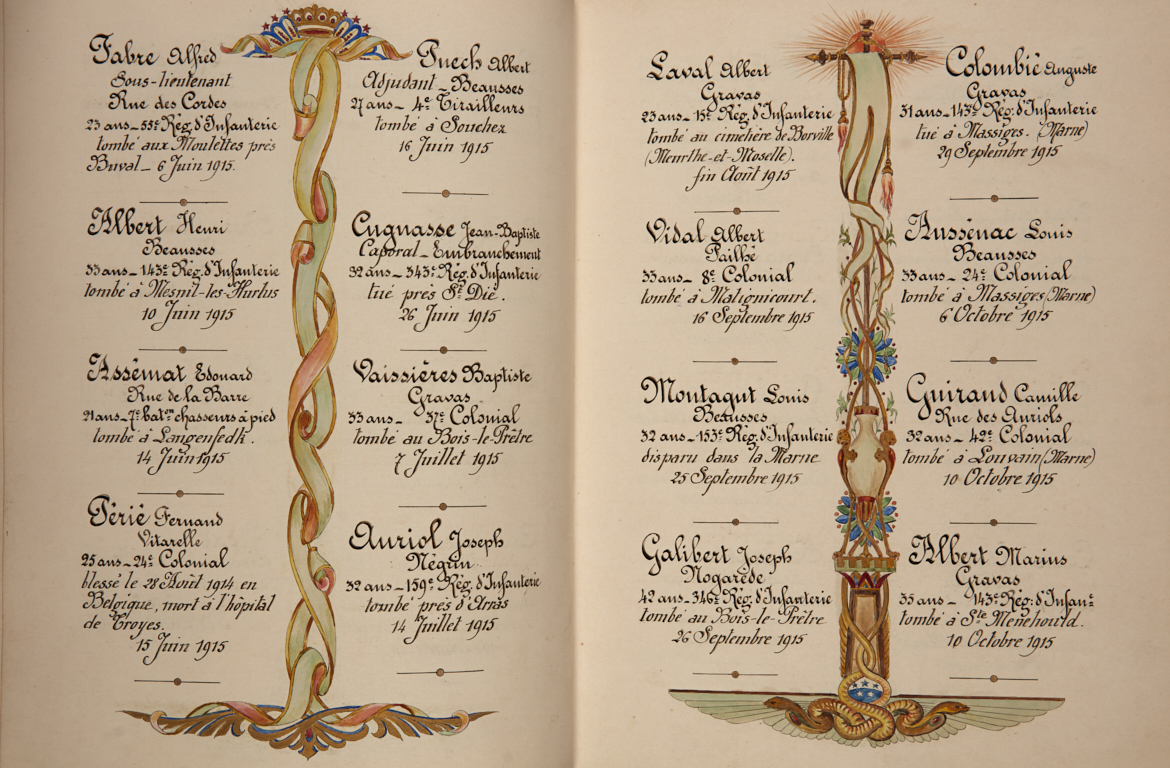 Fabre Alfred
Sous-lieutenant
Rue des Cordes
23 ans_ 55e Rég. d'Infanterie
tombé aux Moulettes près
Buval_ 6 Juin 1915.
Albert Henri
Beausses
33 ans_ 143e Rég. d'Infanterie
tombé à Mesnil-les-Hurlus
10 Juin 1915
Assémat Edouard
Rue de la Barre
21 ans_ 7e baton chasseurs à pied
tombé à Langenfedk.
14 Juin 1915
Périé Fernand
Vitarelle
25 ans_ 24e Colonial
blessé le 28 Août 1914 en
Belgique, mort à l'hôpital
de Troyes.
15 Juin 1915
Puech Albert
Adjudant_ Beausses
27 ans_ 4e Tirailleurs
tombé à Souchez
16 Juin 1915
Cugnasse Jean-Baptiste
Caporal_ Embranchement
32 ans_ 343e Rég. d'Infanterie
tué près St Dié.
26 Juin 1915
Vaissières Baptiste
Gravas
33 ans_ 37e Colonial
tombé au Bois-le-Prêtre
7 Juillet 1915
Auriol Joseph
Négrin
32 ans_ 159e Rég. d'Infanterie
tombé près d'Arras
14 Juillet 1915
Laval Albert
Gravas
23 ans_ 15e Rég. d'Infanterie
tombé au cimetière de Borville
(Meurthe-et-Moselle).
fin Août 1915
Vidal Albert
Pailhé
33 ans_ 8e Colonial
tombé à Matignicourt.
16 Septembre 1915
Montagut Louis
Beausses
32 ans_ 153e Rég. d'Infanterie
disparu dans la Marne
25 Septembre 1915
Galibert Joseph
Nogarède
42 ans_ 346e Rég. d'Infanterie
tombé au Bois-le-Prêtre
26 Septembre 1915
Colombié Auguste
Gravas
31 ans_ 143e Rég. d'Infanterie
tué à Massiges. (Marne)
29 Septembre 1915
Aussenac Louis
Beausses
33 ans_ 24e Colonial
tombé à Massiges (Marne)
6 Octobre 1915
Guiraud Camille
Rue des Auriols
32 ans_ 42e Colonial
tombé à Louvain (Marne)
10 Octobre 1915
Albert Marius
Gravas
35 ans_ 143e Rég. d'Infante
tombé à Ste Menehould.
10 Octobre 1915